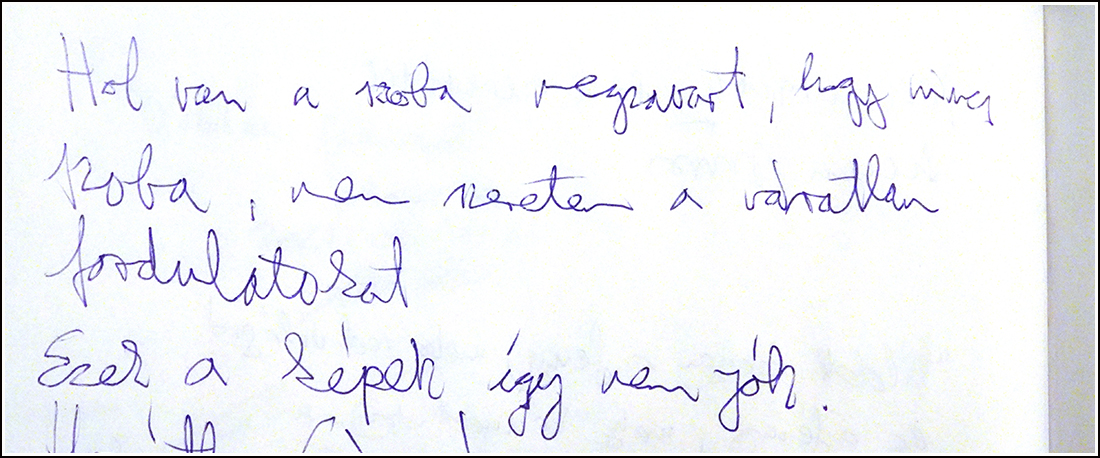 Hol van a szoba megzavart, hogy nincs
szoba, nem szeretem a váratlan
fordulatokat
Ezek a képek így nem jók.